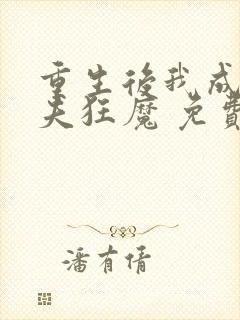 重生後我成
夫狂魔 免費
潘有倩